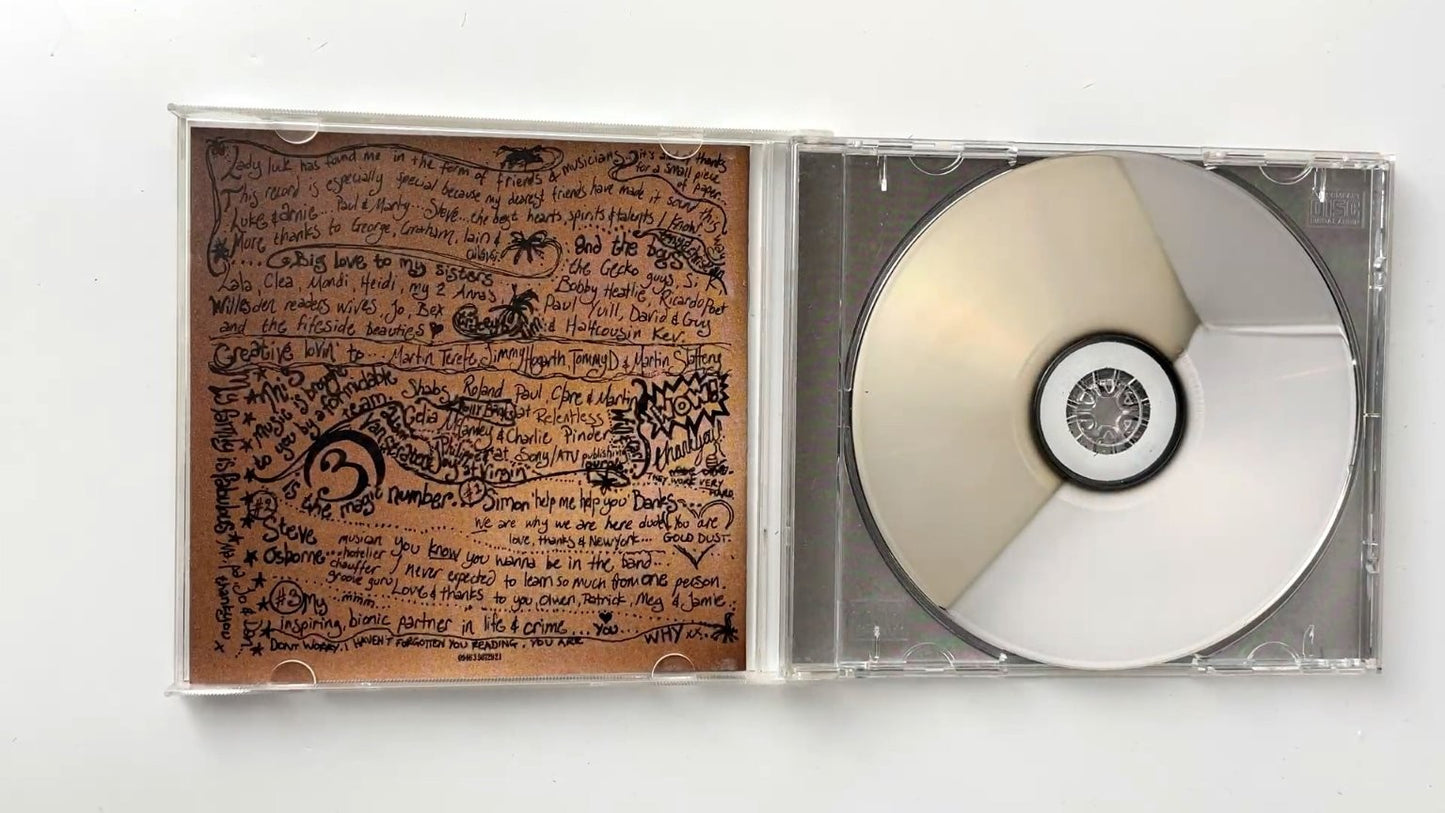 Lady luck has found me in the form of friends & musicians
it's a big thanks
for a small piece
of paper...
This record is especially special because my dearest friends have made it sound this way
Luke & arnie... Paul & Marty... Steve... the best hearts, spirits & talents I know!
More thanks to George, Graham, Iain &
..... Big love to my sisters
Lala, Clea, Mondi, Heidi, my 2 Annas,
Willesden readers wives, Jo, Bex
and the fireside beauties
and the boys
the Gecko guys, Si K,
Bobby Heatlie, Ricardo Poet
Paul Yuill, David & Guy
& Halfcousin Kev.
Creative lovin' to... Martin Terefe, Jimmy Hogarth, Tommy D & Martin Slattery
This
music is brought
to you by a formidable
team.
Shabs, Roland, Paul, Clare & Martin
at Relentless
Mandey & Charlie Pinder
at Sony/ATV publishing
at Virgin.
WOW!
thankyou!
THEY WORK VERY
HARD.
3
is the magic number.
#1 Simon 'help me help you' Banks...
We are why we are here dude! You are
love, thanks & New York... GOLD DUST.
#2
Steve
Osborne...
musician
hotelier
chauffer
groove guru
mmm...
you know you wanna be in the band...
I never expected to learn so much from one person.
Love & thanks to you, Owen, Patrick, Meg & Jamie
#3 My
inspiring, bionic partner in life & crime... You...
WHY xx
DONT WORRY, I HAVEN'T FORGOTTEN YOU READING, YOU ARE
My family is fabulous
thankyou x
COMPACT
DISC
DIGITAL AUDIO